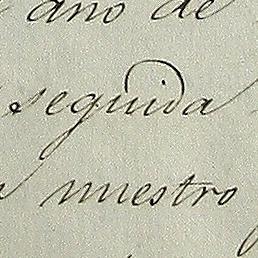 ano de
seguida
nuestro